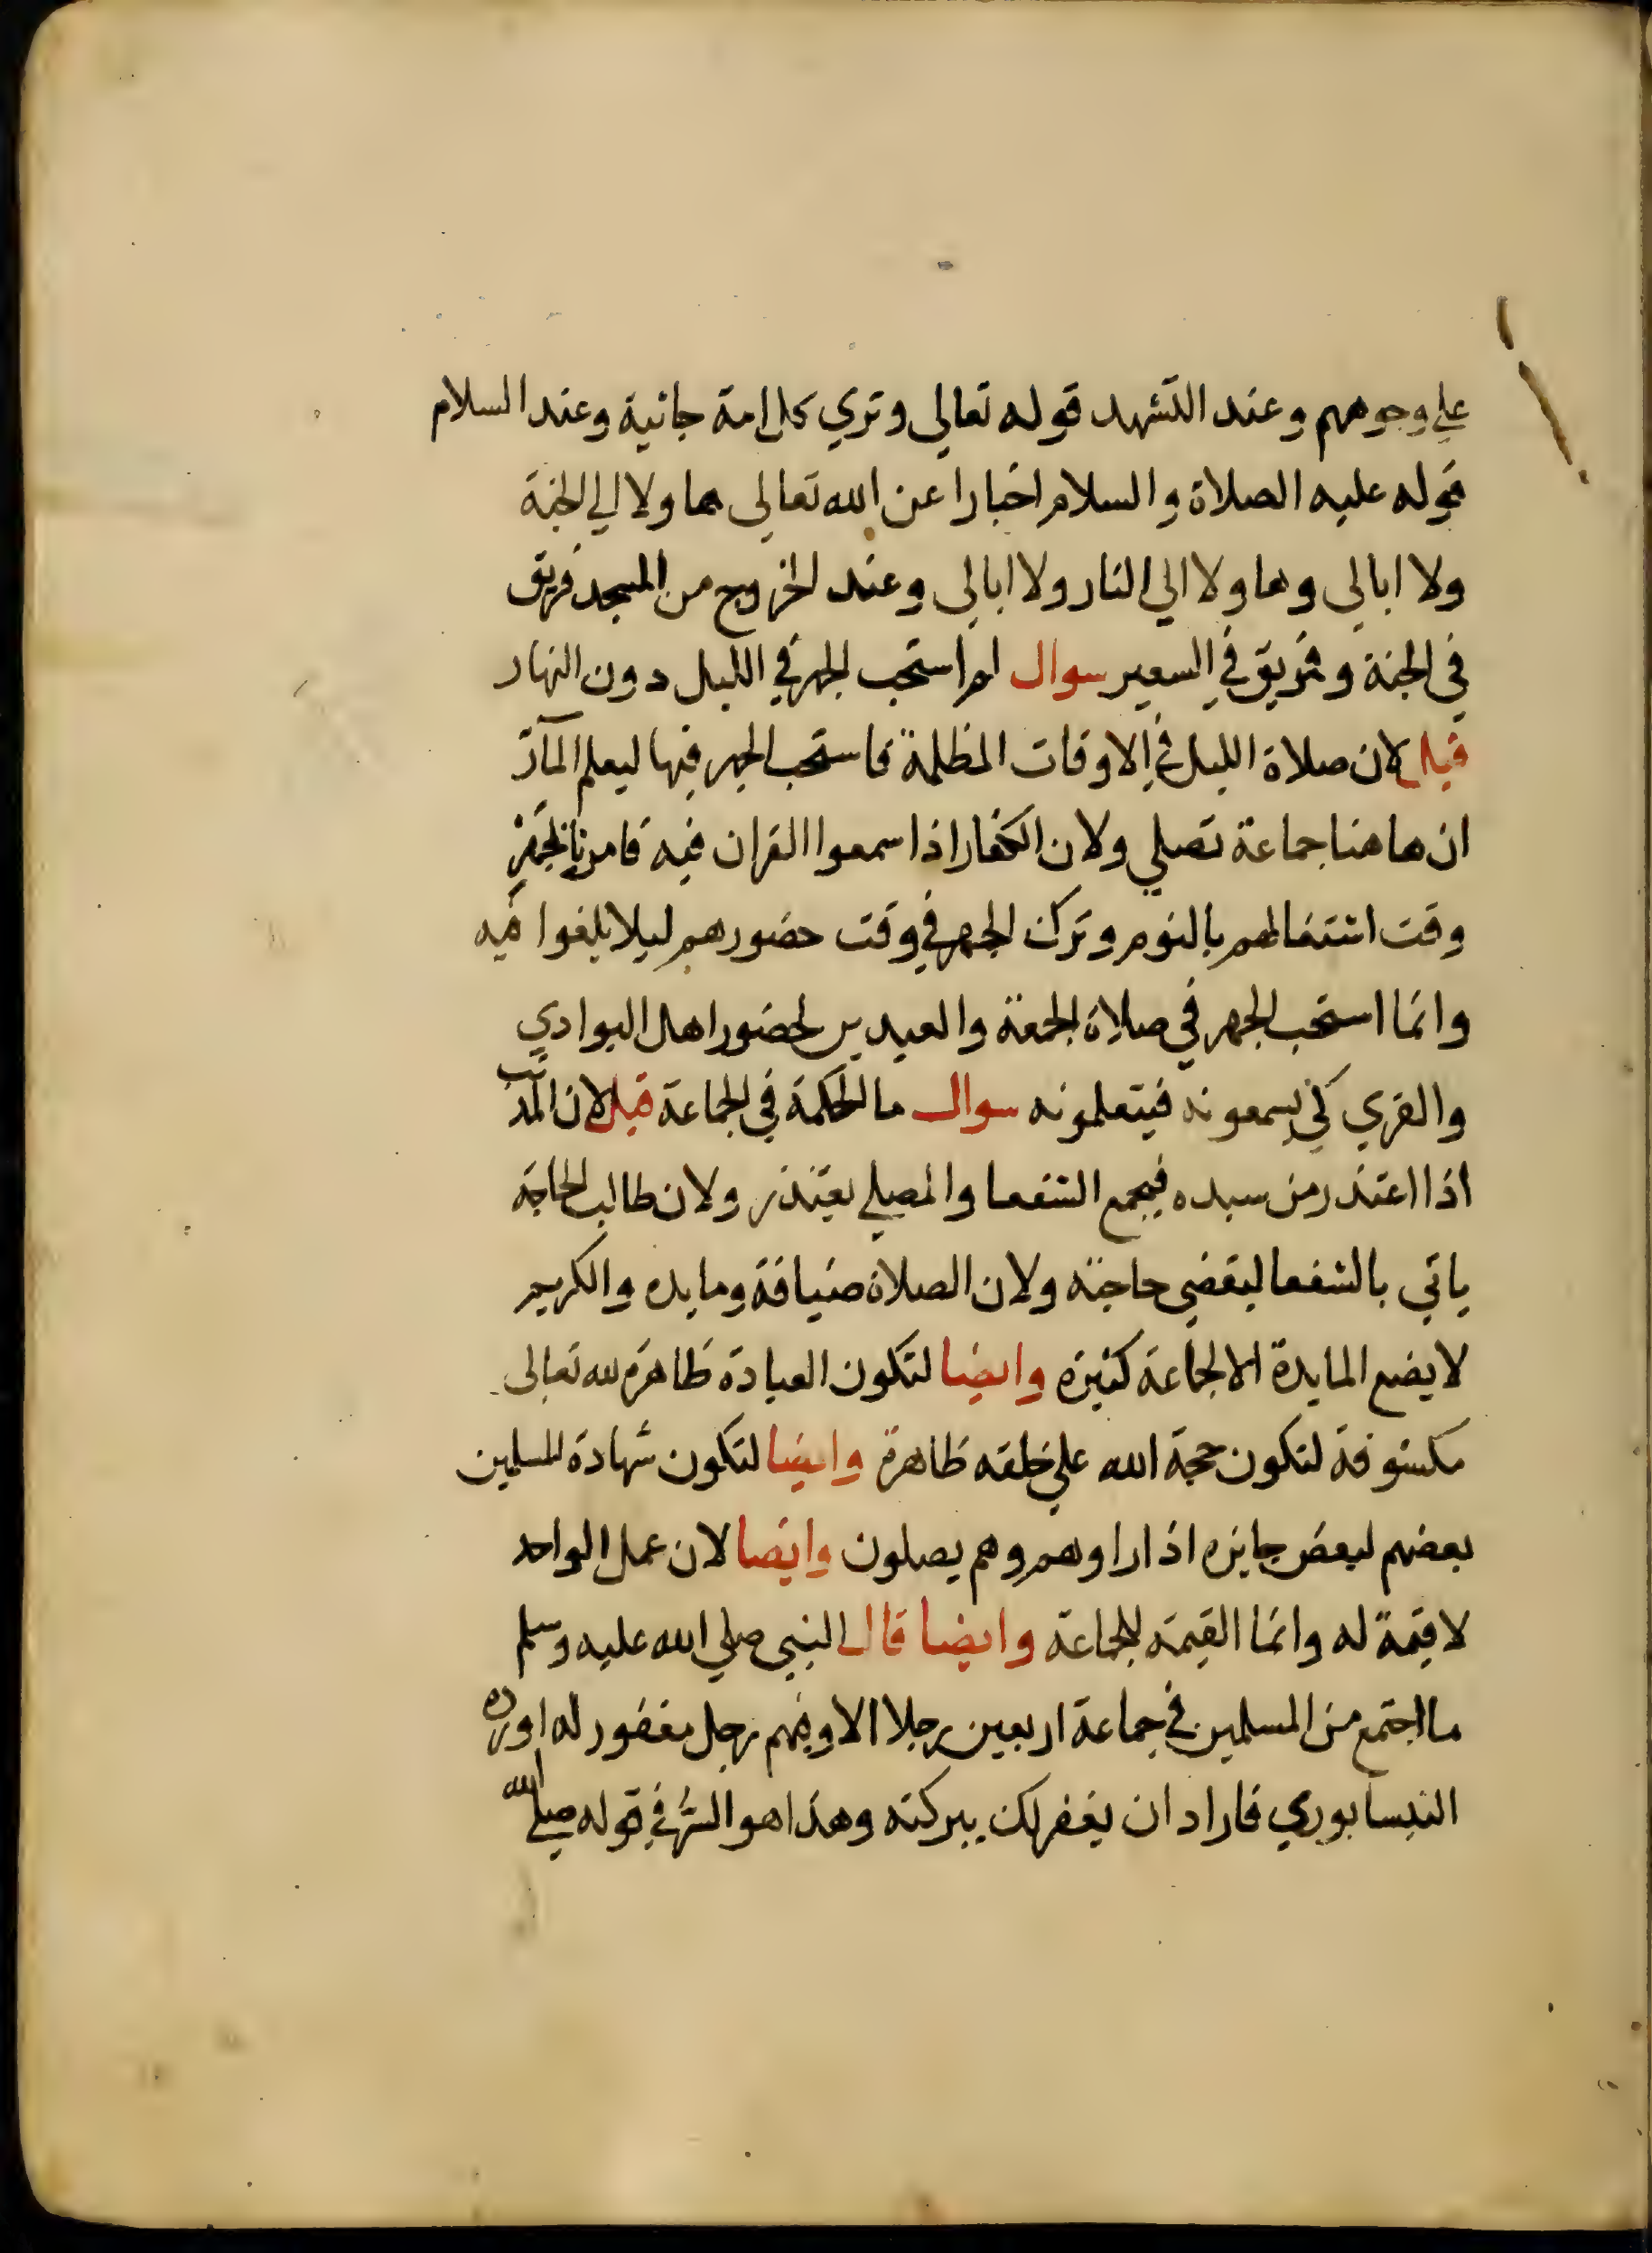 علي وجوههم وعند التشهد قوله تعالى وتري كل امة جاثية وعند السلام
قوله عليه الصلاة والسلام اخبارا عن الله تعالى هاولا الي الجنة
ولا ابالى وهاولا الي النار ولا ابالى وعند الخروج من المسجد فريق
في الجنة وفريق في السعير سوال لم استحب الجهر في الليل دون النهار
قيل لان صلاة الليل في الاوقات المظلمة فاستحب الجهر فيها ليعلم المآرّ
ان هاهنا جماعة تصلي ولان الكفار اذا سمعوا القران فيه فامرنا بالجهر
وقت اشتغالهم بالنوم وترك الجهر في وقت حضورهم ليلا يلغوا فيه
وانما استحب الجهر في صلاة الجمعة والعيدين لحضور اهل البوادي
والقري كي يسمعونه فيتعلمونه سوال ما الحكمة في الجماعة قيل لان المذنب
اذا اعتذر من سيده فيجمع الشفعا والمصلي يعتذر ولان طالب الحاجة
ياتي بالشفعا ليقضي حاجته ولان الصلاة ضيافة ومايده والكريم
لا يضع المايدة الا لجماعة كثيرة وايضا لتكون العبادة ظاهرة لله تعالى
مكشوفة لتكون حجة الله علي خلقه ظاهرة وايضا لتكون شهادة المسلمين
بعضهم لبعض جايزه اذا راوهم وهم يصلون وايضا لان عمل الواحد
لا قيمة له وانما القيمة للجماعة وايضا قال النبي صلي الله عليه وسلم
ما اجتمع من المسلمين في جماعة اربعين رجلا الا وفيهم رجل مغفور له اورده
النيسابوري فاراد ان يغفر لك ببركته وهذا هو السر في قوله صلي الله